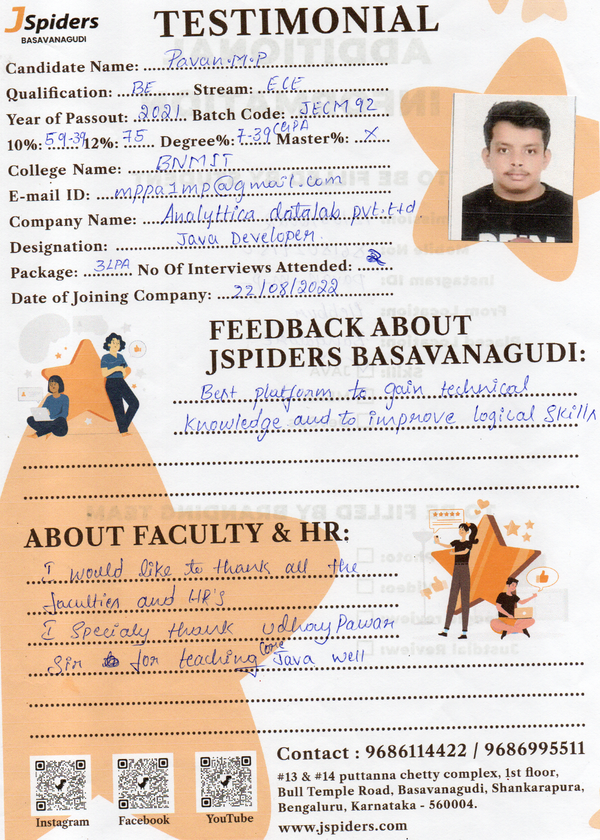 JSpiders
BASAVANAGUDI
TESTIMONIAL
Candidate Name: Pavan.M.P
Qualification: BE Stream: ECE
Year of Passout: 2021 Batch Code: JECM92
10%: 59.39 12%: 75 Degree%: 7.39 CGPA Master%: X
College Name: BNMIT
E-mail ID: mppa1mp@gmail.com
Company Name: Analyttica datalab pvt.t+d
Designation: Java Developer.
Package: 3LPA No Of Interviews Attended: 2
Date of Joining Company: 22/08/2022
FEEDBACK ABOUT
JSPIDERS BASAVANAGUDI:
Best platform to gain technical
knowledge and to improve logical skills
ABOUT FACULTY & HR:
I would like to thank all the
faculties and HR's
I Specialy thank udhay Pawar
Sir for teaching Core Java well
Contact : 9686114422 / 9686995511
#13 & #14 puttanna chetty complex, 1st floor,
Bull Temple Road, Basavanagudi, Shankarapura,
Bengaluru, Karnataka - 560004.
www.jspiders.com
Instagram Facebook YouTube